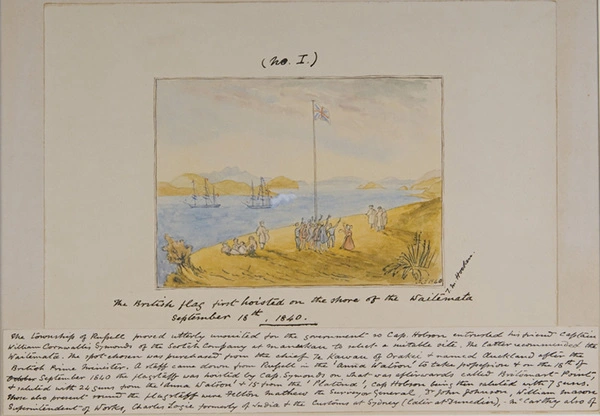 (No. I.)
The British flag first hoisted on the shore of the Waitemata
September 18th 1840.
The township of Russell proved utterly unsuited for the government so Cap Hobson entrusted his friend Captain
William Cornwallis Symonds of the Scotch Company at Manukau to select a suitable site. The latter recommended the
Waitemata. The spot chosen was purchased from the chief Te Kawau of Orakei & named Auckland after the
British Prime Minister. A staff came down from Russell in the 'Anna Watson' to take possession & on the 18th of
September 1840 the flagstaff was hoisted by Cap Symonds on what was afterwards called Britomart Point,
& saluted with 24 guns from the 'Anna Watson' & 15 from the 'Platina', Cap Hobson being then saluted with 7 guns.
Those also present round the flagstaff were Felton Mathew the Surveyor General, Dr John Johnson, William Mason
Superintendent of Works, Charles Logie formerly of India & the Customs at Sydney (later at Dunedin), Mr Carthey also of